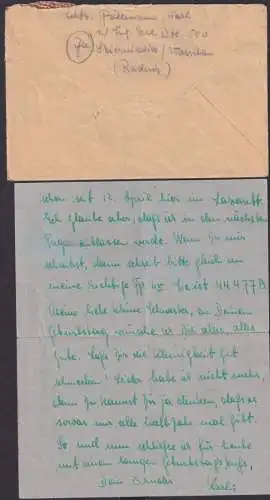 Karl
schon seit 12. April hier im Lazarett.
Ich glaube aber, dass ich in den nächsten
Tagen entlassen werde. Wenn Du mir
schreibst, dann schreib bitte gleich an
meine richtige Fp. Nr. Sie ist 44477B
Meine liebe kleine Schwester, zu Deinem
Geburtstag wünsche ich Dir alles, alles
Gute. Lass Dir die Kleinigkeit gut
schmecken! Leider habe ich nicht mehr,
denn Du kannst Dir ja denken, dass es
sowas nur alle halb Jahr mal gibt.
So, und nun schliesse ich für heute
mit einem innigen Geburtstagskuss,
Dein Bruder
Karl